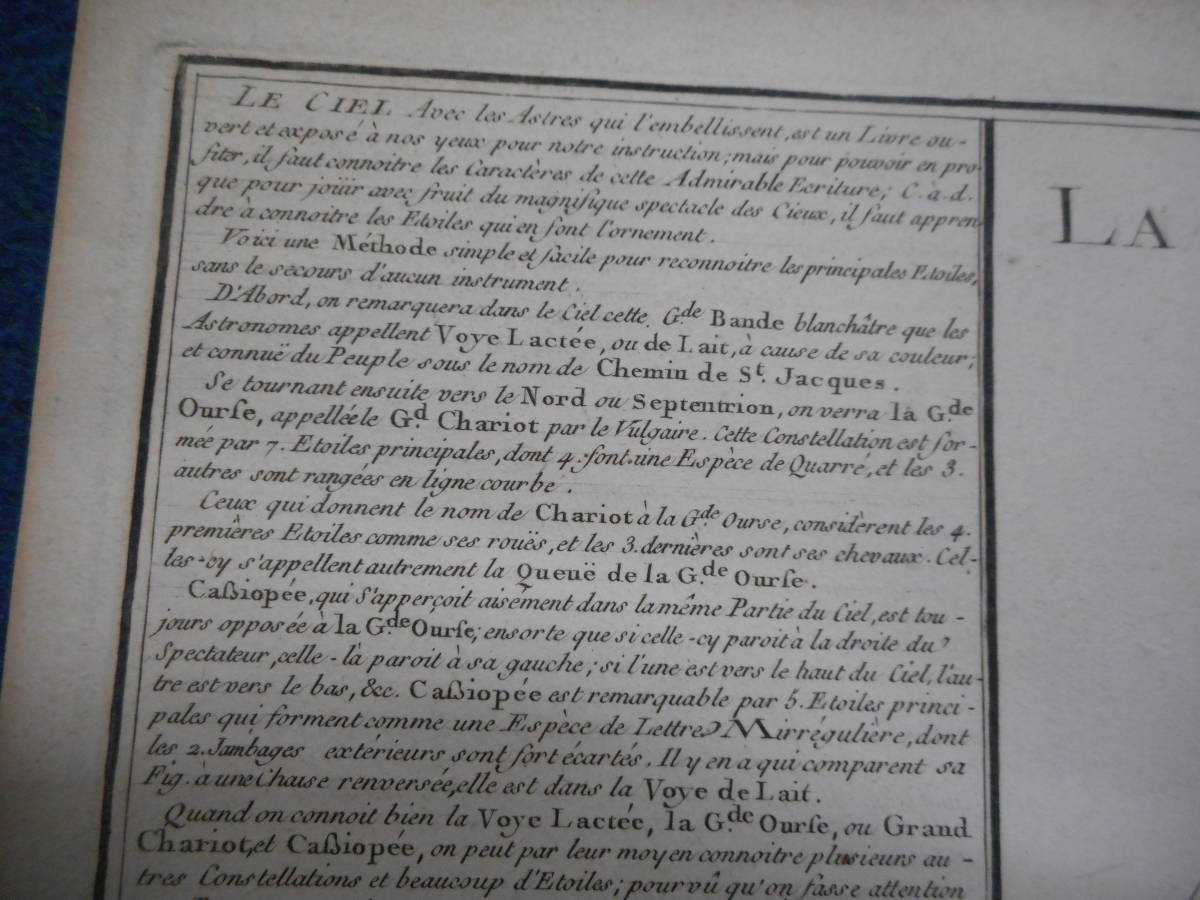 LE CIEL Avec les Astres qui l'embellissent, est un Livre ou-
vert et exposé à nos yeux pour notre instruction; mais pour pouvoir en pro-
fiter, il faut connoitre les Caractères de cette Admirable Ecriture; C. à. d.
que pour joüir avec fruit du magnifique spectacle des Cieux, il faut appren-
dre à connoitre les Etoiles qui en font l'ornement.
Voici une Méthode simple et facile pour reconnoitre les principales Etoiles,
sans le secours d'aucun instrument.
D'Abord, on remarquera dans le Ciel cette G.de Bande blanchâtre que les
Astronomes appellent Voye Lactée, ou de Lait, à cause de sa couleur;
et connuë du Peuple sous le nom de Chemin de St. Jacques.
Se tournant ensuite vers le Nord ou Septentrion, on verra la G.de
Ourſe, appellée le G.d Chariot par le Vulgaire. Cette Constellation est for-
mée par 7. Etoiles principales, dont 4. font une Espèce de Quarré, et les 3.
autres sont rangées en ligne courbe.
Ceux qui donnent le nom de Chariot à la G.de Ourse, considèrent les 4.
premières Etoiles comme ses rouës, et les 3. dernières sont ses chevaux. Cel-
les-cy s'appellent autrement la Queuë de la G.de Ourſe.
Caßiopée, qui s'apperçoit aisément dans la même Partie du Ciel, est tou-
jours opposée à la G.de Ourſe; ensorte que si celle-cy paroit à la droite du
Spectateur, celle-là paroit à sa gauche; si l'une est vers le haut du Ciel, l'au-
tre est vers le bas, &c. Caßiopée est remarquable par 5. Etoiles princi-
pales qui forment comme une Espèce de Lettre M irrégulière, dont
les 2. Jambages extérieurs sont fort écartés. Il y en a qui comparent sa
Fig. à une Chaise renversée, elle est dans la Voye de Lait.
Quand on connoit bien la Voye Lactée, la G.de Ourſe, ou Grand
Chariot, et Caßiopée, on peut par leur moyen connoitre plusieurs au-
tres Constellations et beaucoup d'Etoiles; pourvû qu'on fasse attention
LA